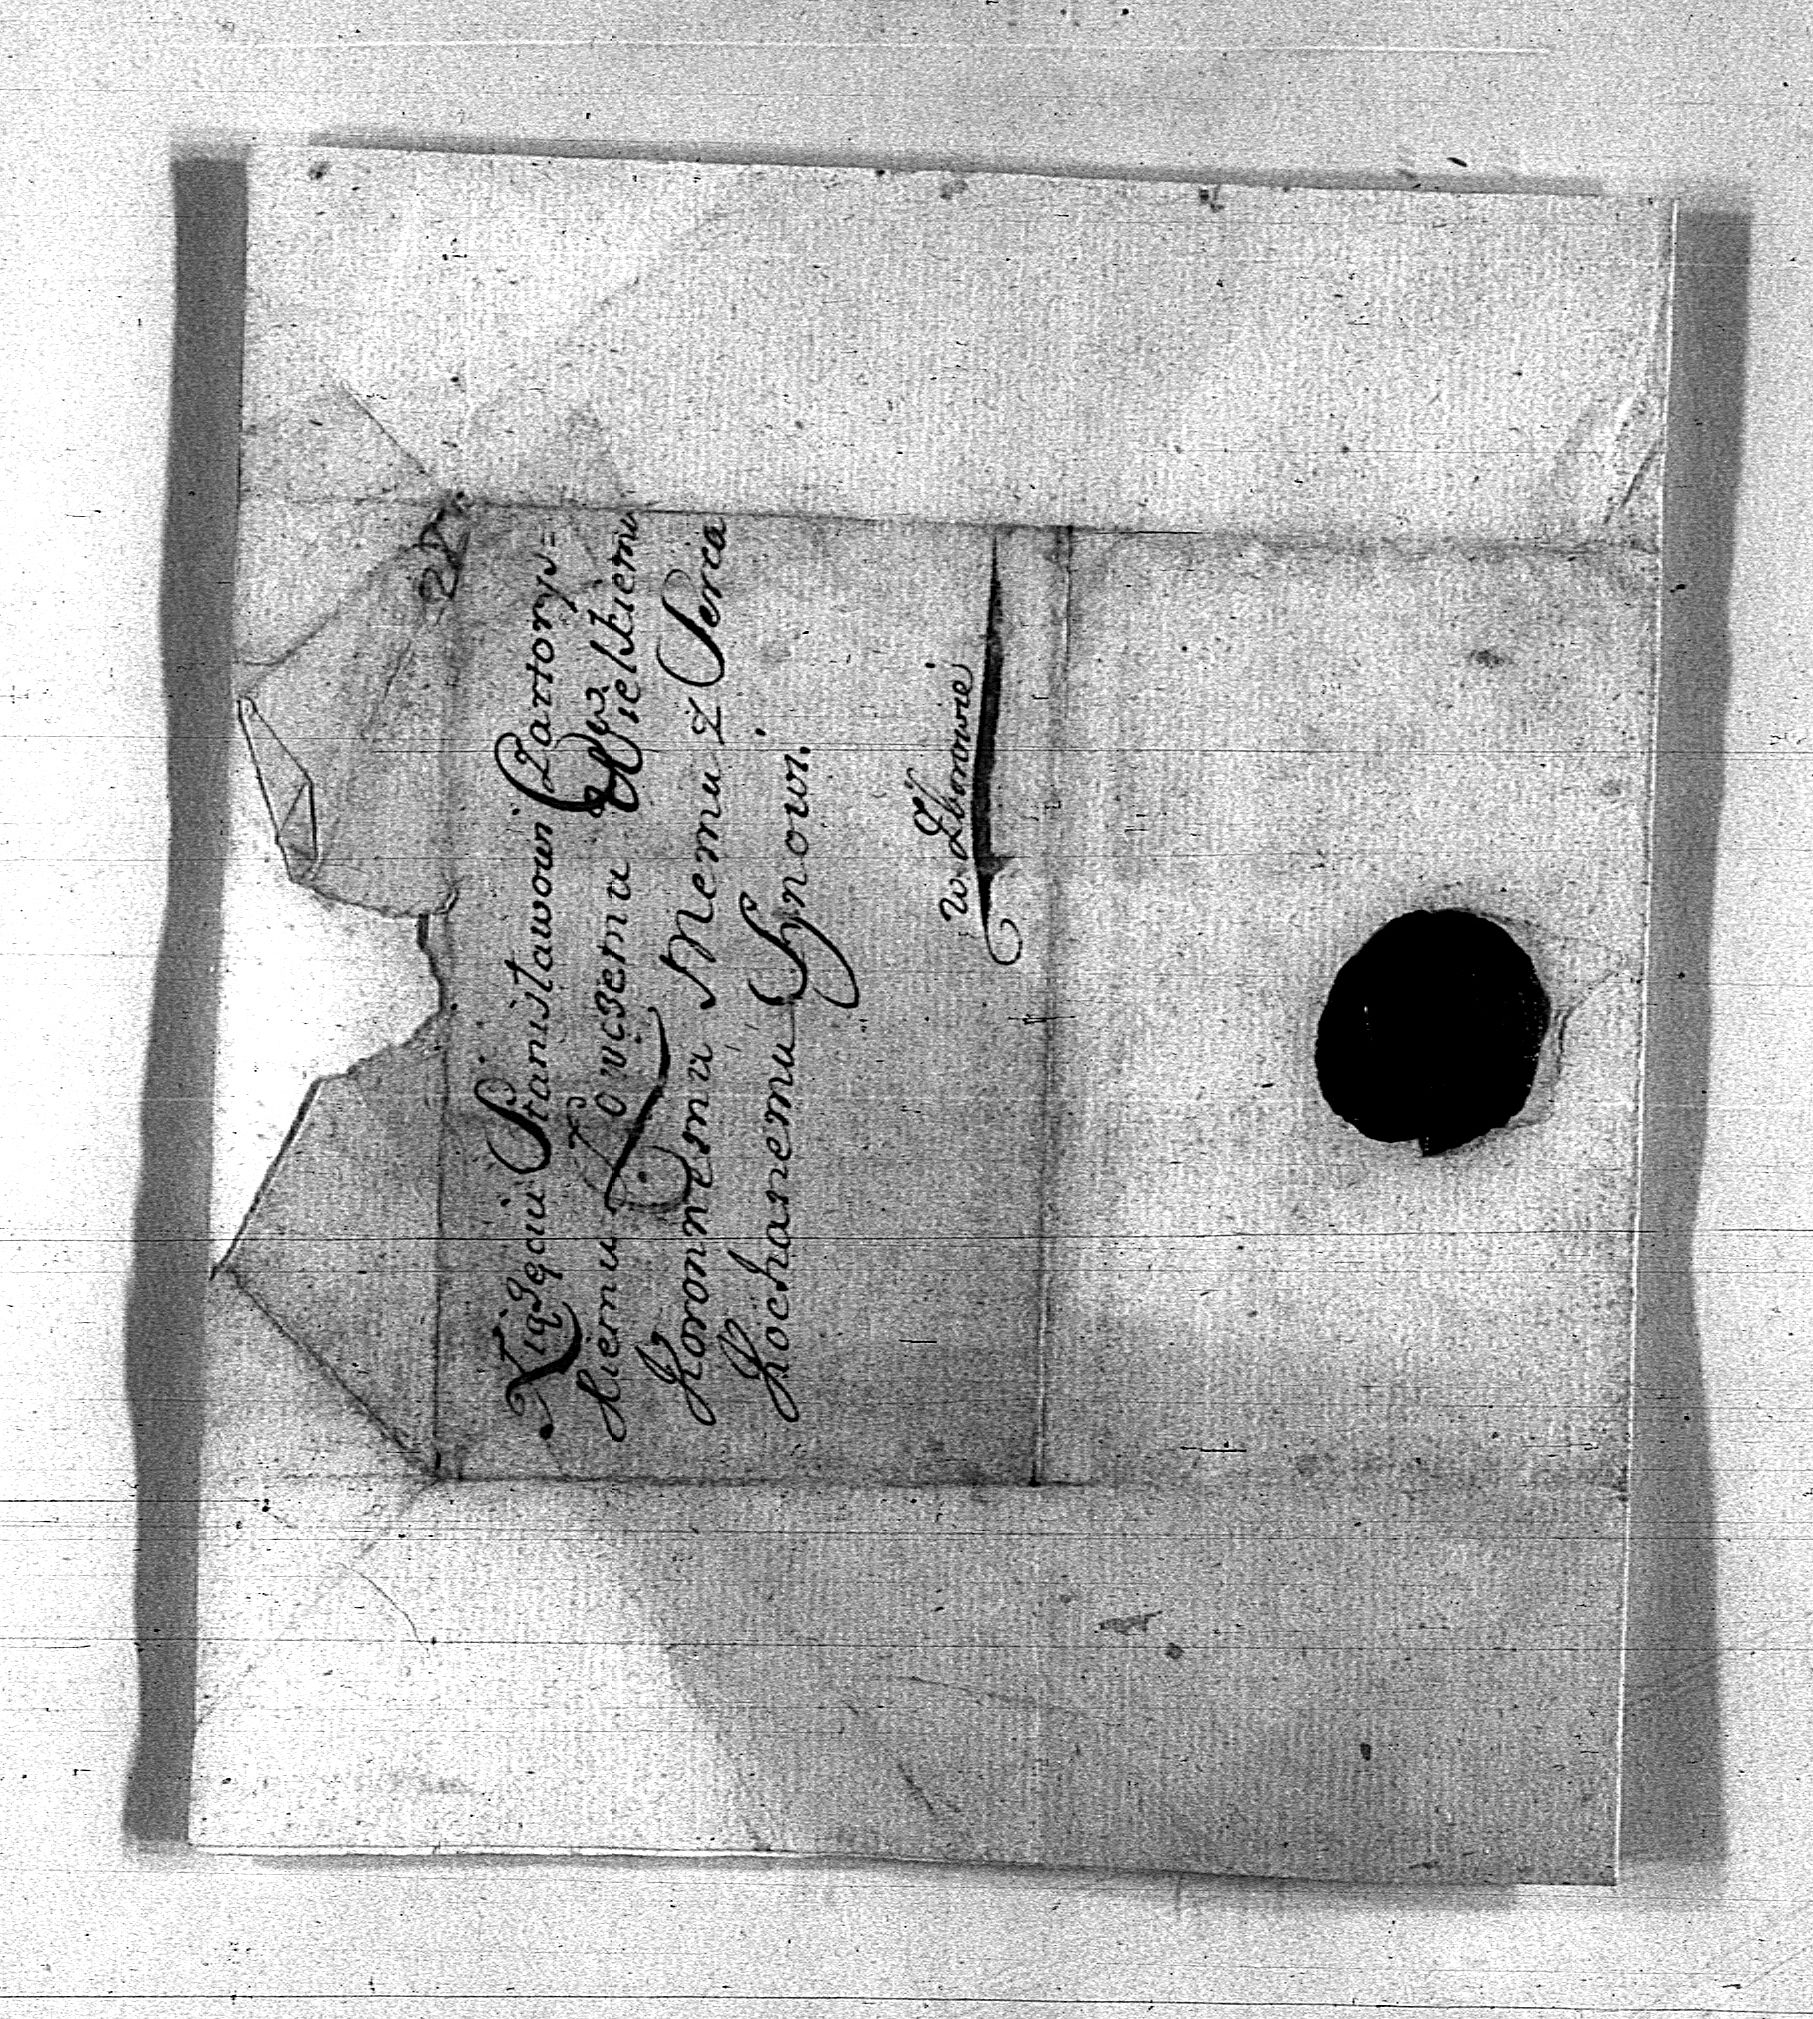 Xiążęciu Stanisławowi Czartorys=
kiemu Łowczemu Wielkiemu
Koronnemu Memu z Serca
Kochanemu Synowi.
w Zborowie